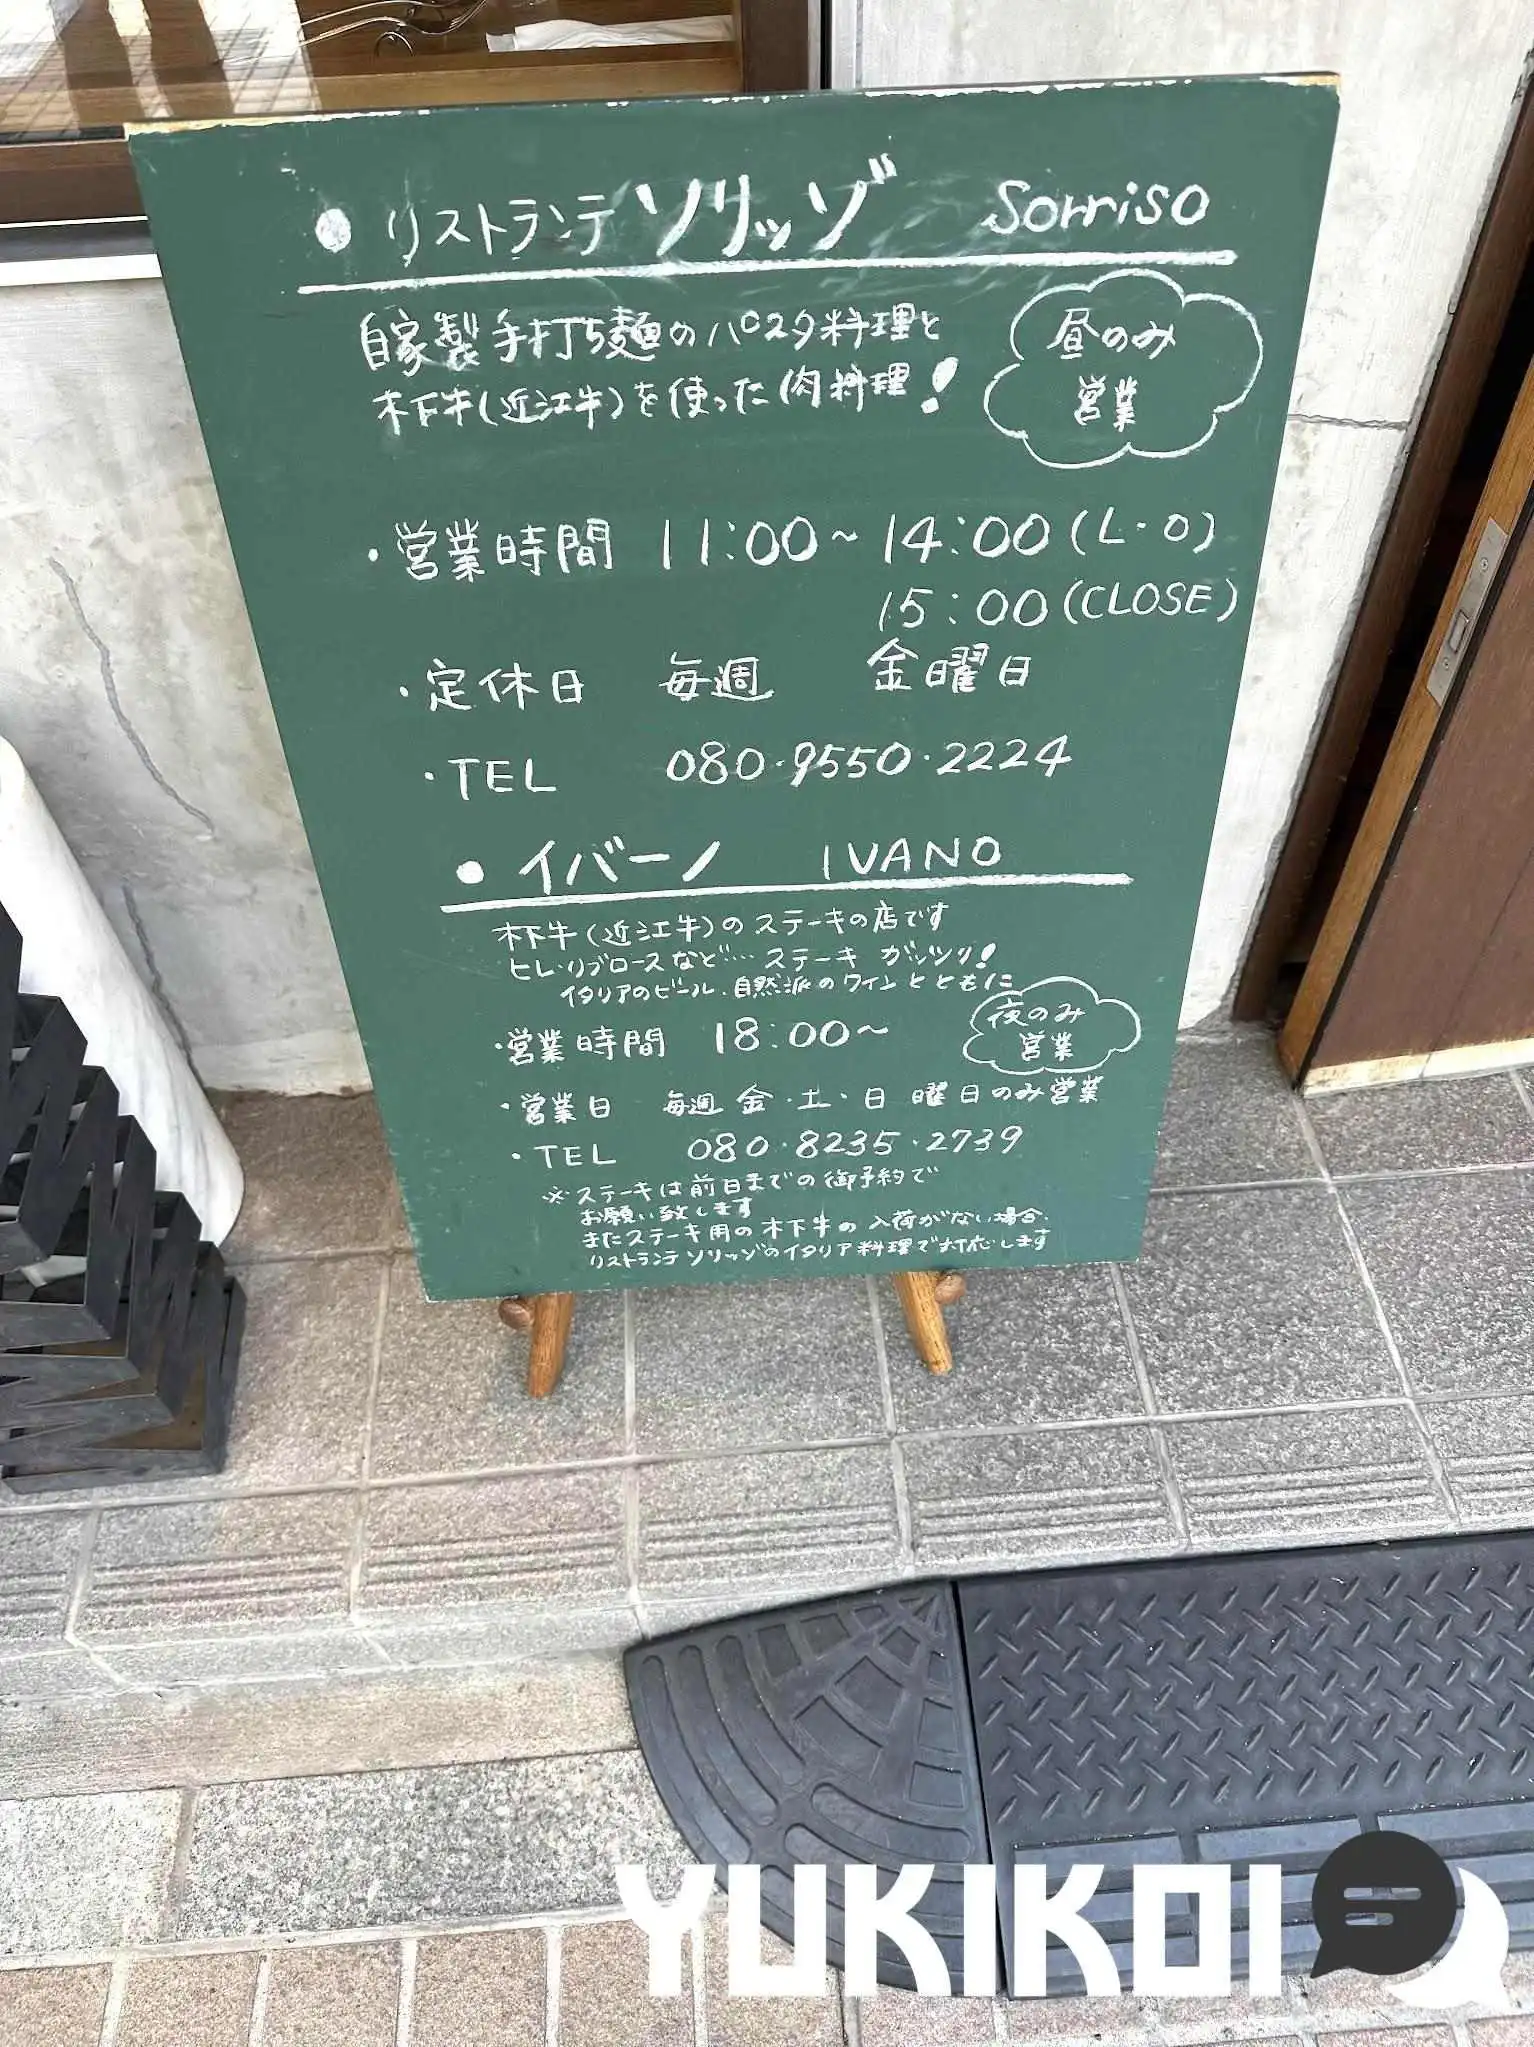 ● リストランテ ソリッゾ Sorriso
自家製手打ち麺のパスタ料理と
木下牛(近江牛)を使った肉料理!
昼のみ
営業
・営業時間 11:00~14:00(L・O)
15:00(CLOSE)
・定休日 毎週 金曜日
・TEL 080・9550・2224
● イバーノ IVANO
木下牛(近江牛)のステーキの店です
ヒレ・リブロースなど… ステーキ ガッツリ!
イタリアのビール、自然派のワインとともに
夜のみ
営業
・営業時間 18:00~
・営業日 毎週 金・土・日 曜日のみ営業
・TEL 080・8235・2739
※ステーキは前日までの御予約で
お願い致します
またステーキ用の木下牛の入荷がない場合、
リストランテ ソリッゾのイタリア料理で対応します
YUKIKOI